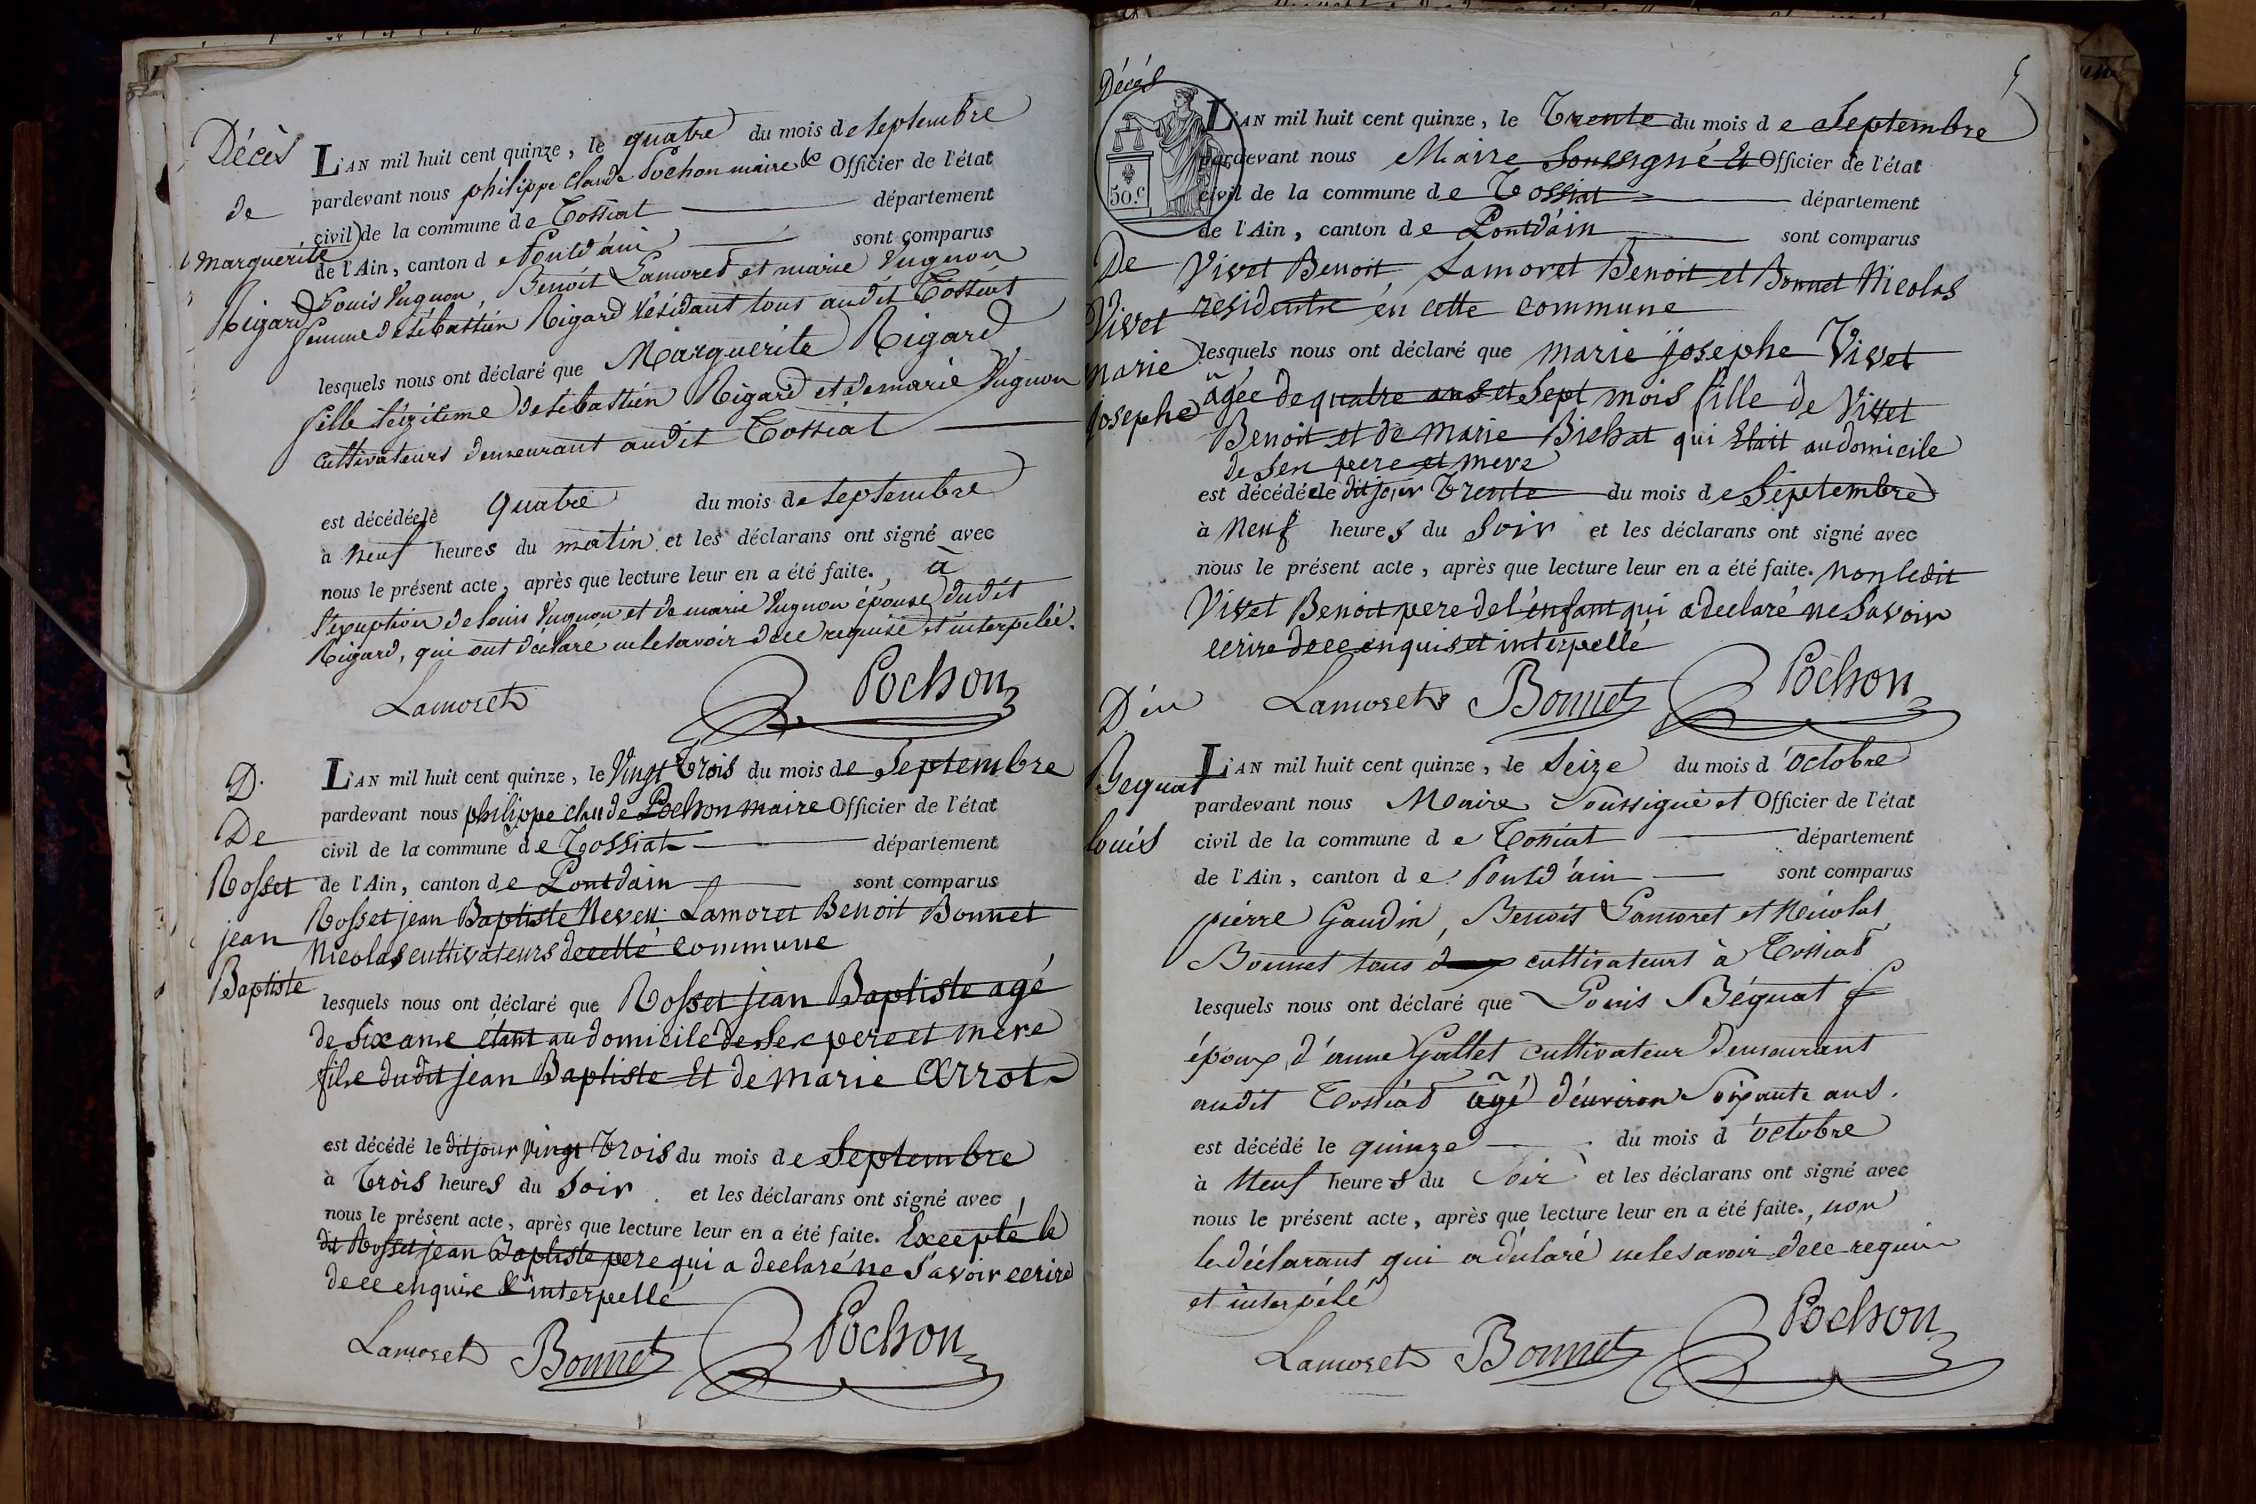 Décès
de
marguerite
Rigard
L'AN mil huit cent quinze, le quatre du mois de septembre
pardevant nous philippe Claude Pochon maire & Officier de l'état
civil de la commune de Tossiat département
de l'Ain, canton de Pontd'ain sont comparus
Louis Vugnon, Benoit Lamoret et marie Vugnon
femme de sébastien Rigard résidant tous audit Tossiat
lesquels nous ont déclaré que Marguerite Rigard
fille de sébastien Rigard et de marie Vugnon
cultivateurs demeurant audit Tossiat
est décédée le quatre du mois de septembre
à neuf heures du matin et les déclarans ont signé avec
nous le présent acte, après que lecture leur en a été faite. à
l'exception de louis Vugnon et de marie Vugnon épouse dudit
Rigard, qui ont déclaré ne le savoir de ce requise et interpelié.
Lamoret Pochon
D.
De
Rosset
jean
Baptiste
L'AN mil huit cent quinze, le Vingt Trois du mois de Septembre
pardevant nous philippe claude Pochon maire Officier de l'état
civil de la commune de Tossiat département
de l'Ain, canton de Pontdain sont comparus
Rosset jean Baptiste Neveu Lamoret Benoit Bonnet
Nicolas cultivateurs de cette commune
lesquels nous ont déclaré que Rosset jean Baptiste agé
de six ans étant au domicile de ses pere et mere
fils dudit jean Baptiste Et de marie Arrot
est décédé le dit jour vingt Trois du mois de Septembre
à Trois heures du Soir et les déclarans ont signé avec
nous le présent acte, après que lecture leur en a été faite. Excepté le
dit Rosset jean Baptiste pere qui a declaré ne Savoir ecrire
de ce enquis & interpellé
Lamoret Bonnet Pochon
5
Décés
50.c
De
Vivet
Marie
Josephe
L'AN mil huit cent quinze, le Trente du mois de Septembre
pardevant nous Maire Soussigné Et Officier de l'état
civil de la commune de Tossiat département
de l'Ain, canton de Pontd'ain sont comparus
Vivet Benoit, Lamoret Benoit et Bonnet Nicolas
residents en cette commune
lesquels nous ont déclaré que marie josephe Vivet
âgée de quatre ans et Sept mois fille de Vivet
Benoit et de Marie Bichat qui Etait au domicile
de Sen pere et mere
est décédée le dit jour Trente du mois de Septembre
à Neuf heures du Soir et les déclarans ont signé avec
nous le présent acte, après que lecture leur en a été faite. Non ledit
Vivet Benoit pere de l'enfant qui a declaré ne Savoir
ecrire de ce enquis et interpellé
Lamoret Bonnet Pochon
Dèu
Bequat
louis
L'AN mil huit cent quinze, le Seize du mois d'octobre
pardevant nous Maire Soussigné et Officier de l'état
civil de la commune de Tossiat département
de l'Ain, canton de Pontd'ain sont comparus
pierre Gaudin, Benoit Lamoret et Nicolas
Bonnet tous cultivateurs à Tossiat
lesquels nous ont déclaré que Louis Béquat
époux d'anne Gallet cultivateur demeurant
audit Tossiat âgé d'environ Soixante ans.
est décédé le quinze du mois d'octobre
à Neuf heures du Soir et les déclarans ont signé avec
nous le présent acte, après que lecture leur en a été faite., non
le déclarant qui a déclaré ne le savoir de ce requis
et interpélé
Lamoret Bonnet Pochon